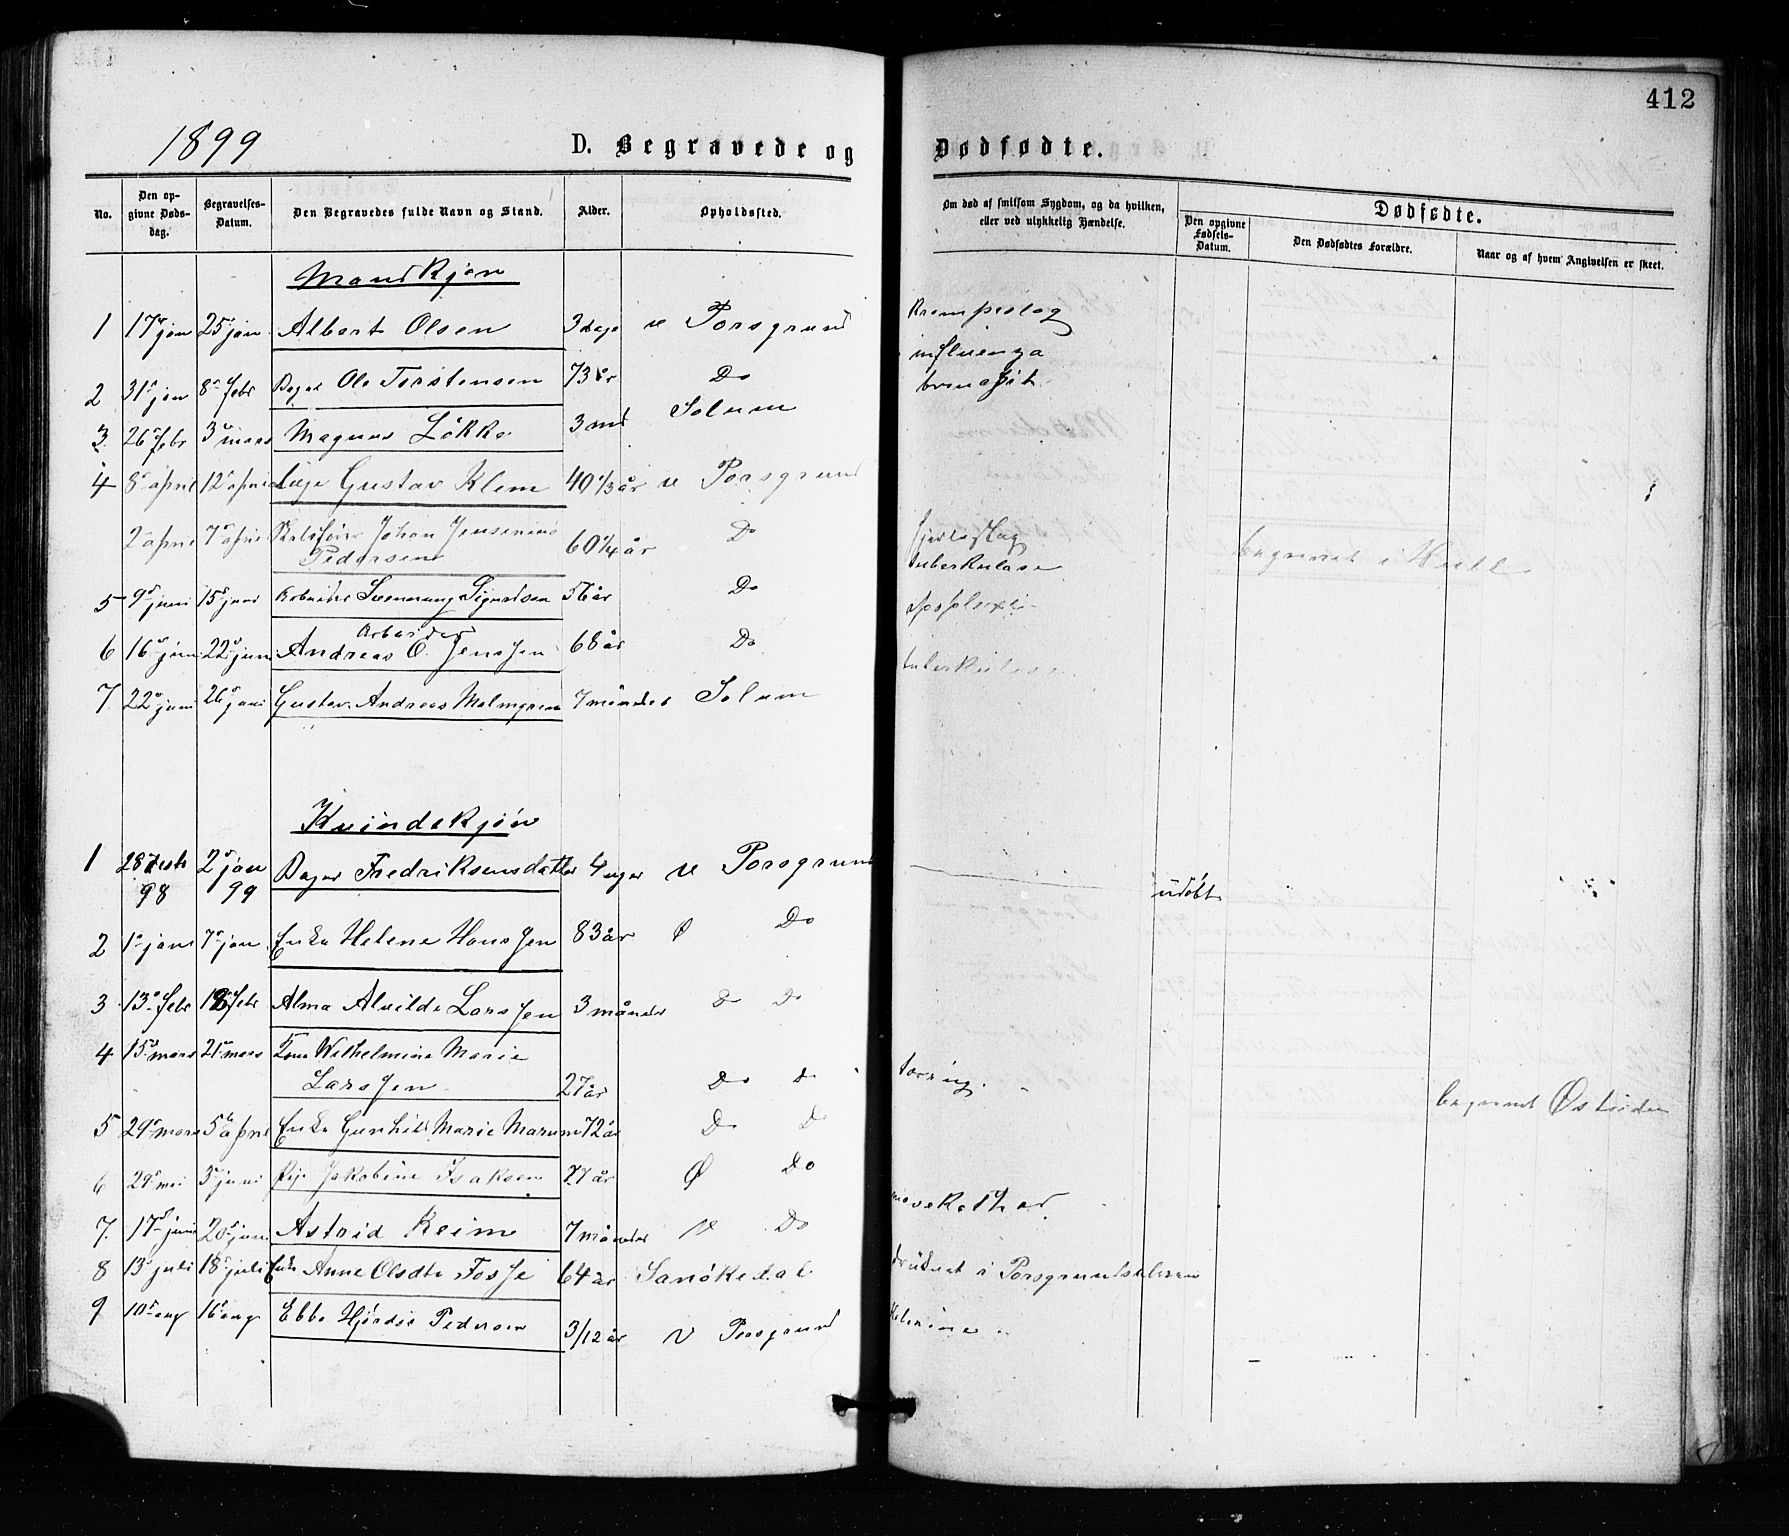 412
1899 D. Begravede og Dødfødte.
No. Den opgivne Døds-dag. Begravelses-Datum. Den Begravedes fulde Navn og Stand. Alder. Opholdssted. Om død af smitsom Sygdom, og da hvilken, eller ved ulykkelig Hændelse. Dødfødte.
Den opgivne Fødsels-Datum. Den Dødfødtes Forældre. Naar og af hvem Angivelsen er skeet.
Mandkjøn
1 17 jan 25 jan Albert Olsen 3 dage v Porsgrund Krampeslag
2 31 jan 8 febr Ole Torstensen 73 år Do influenza
3. 26 febr 3 mars Magnus Løkke 3 md Solum
4 8 april 12 april Gustav Klem 40 1/3 år v Porsgrund
2 april 7 april Johan Jensenius Do hjerteslag
Pedersen 60 1/4 år begravet i
5 9 juni 15 juni Arbeider Sigurdsen 56 år Do tuberkulose
Arbeider
6 16 juni 22 juni Andreas O. Jenssen 68 år Do apoplexi
7. 22 juni 26 juni Gustav Andreas Malmgren 7 måneder Solum tuberkulose
Kvindekjøn
1 28 98 2 jan 99 Fredriksensdatter 4 uger v Porsgrund udøbt
2 1 jan 7 jan Enke Helene Hanssen 83 år Ø Do
3 13 febr 18 febr Alma Alvilde Larssen 3 måneder Do Do
4 15 mars 21 mars Kone Wilhelmine Marie
Larssen 27 år Do Do tæring. begravet Østsiden
5 29 mars 5 april Enke Gunhild Marie 72 år D D
6 29 mei 3 juni Pige Jakobine Isaksen 77 år Ø Do
7. 17 juni 20 juni Astrid Reim 7 måneder v Do
8 13 juli 18 juli Enke Anne Olsdtr Fosse 64 år Sanøkedal druknet i Porsgrundselven
9 10 aug 16 aug Ebba Hjørdis Pedersen 3/12 år V Porsgrund Kolerine